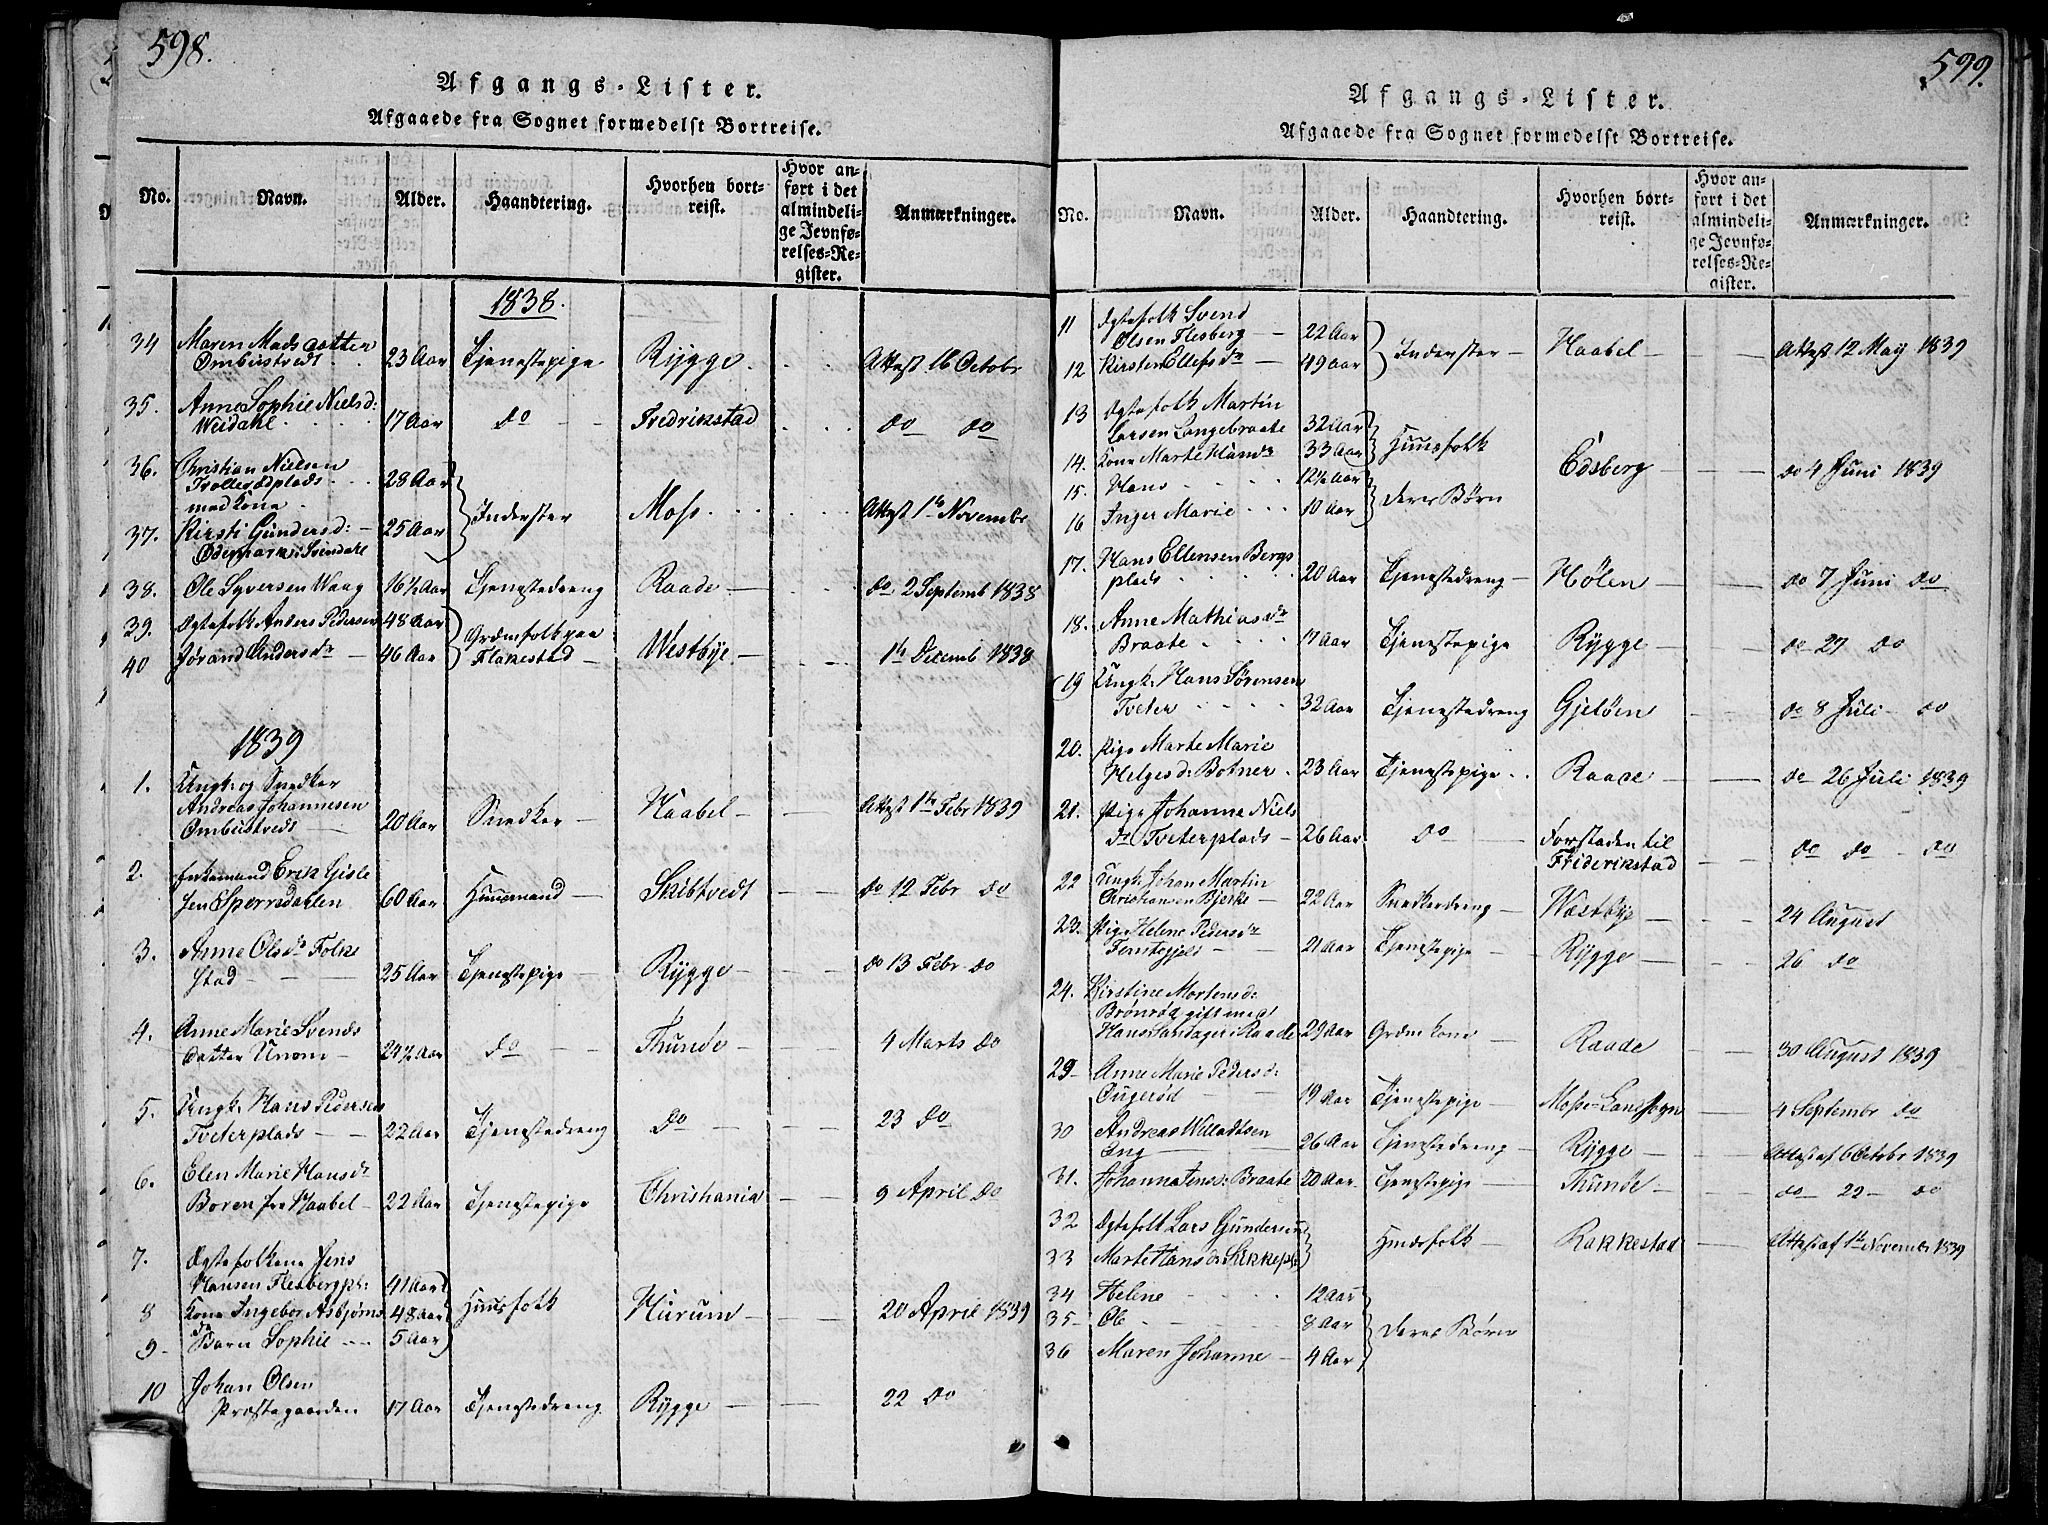 598.
Afgangs-Lister.
Afgaaede fra Sognet formedelst Bortreise.
No. Navn. Alder. Haandtering. Hvorhen bortreist. Hvor anført i det almindelige Jevnførelses-Register. Anmærkninger.
1838.
34 Maren Madsdatter
Ombustvedt 23 Aar Tjenestepige Rygge Attest 16 Octobr
35. Anne Sophie Nielsd:
Weidahl 17 Aar do Fredrikstad do do
36. Christian Nielsen
plads 28 Aar
med Kone Inderster Moss Attest 1te Novembr
37. Kirsti Gundersd: 25 Aar
Odemark i Svindahl
38. Ole Syversen Waag 16½ Aar Tjenestedreng Raade do 2 Septemb 1838
39. Ægtefolk Anders Pedersen 48 Aar Grdmfolk paa
40 Jørand Andersdr 46 Aar Flakestad Westbye 1te Decemb 1838
1839
1. Ungk: og Snedker
Andreas Johannesen
Ombustvedt 20 Aar Snedker Haabel Attest 1te Febr 1839
2. Enkemand Erik Gisle
sen Sperredahlen 60 Aar Huusmand Skibtvedt do 12 Febr do
3. Anne Olsdr Folke
stad 25 Aar Tjenestepige Rygge do 13 Febr do
4. Anne Marie Svends
datter Unom 24½ Aar do Thunøe 4 Marts do
5. Ungk: Hans Pedersen
Tveterplads 22 Aar Tjenestedreng do 23 do
6. Elen Marie Hansdr
Boren fra Haabel 22 Aar Tjenestepige Christiania 9 April do
7. Ægtefolkene Jens
Hansen Flesbergpl: 41 Aar
8 Kone Ingebor Asbjørns 48 Aar Huusfolk Hurum 20 April 1839
dr
9 Barn Sophie 5 Aar
10 Johan Olsen
Præstegaarden 17 Aar Tjenestedreng Rygge 22 do
599.
Afgangs-Lister.
Afgaaede fra Sognet formedelst Bortreise.
No. Navn. Alder. Haandtering. Hvorhen bortreist. Hvor anført i det almindelige Jevnførelses-Register. Anmærkninger.
11 Ægtefolk Svend
Olsen Flesberg 22 Aar
12 Kirsten Ellefsdr 49 Aar Inderster Haabel Attest 12 Maij 1839
13 Ægtefolk Martin
Larsen Langebraate 32 Aar
14. Kone Marte Hansdr 33 Aar Huusfolk
15. Hans 12½ Aar Edsberg do 4 Juni 1839
16 Inger Marie 10 Aar deres Børn
17. Hans Ellensen Bergs
plads 20 Aar Tjenestedreng Hølen do 7 Juni do
18. Anne Mathiasdr
Braate 17 Aar Tjenestepige Rygge do 27 do
19 Ungk: Hans Sørensen
Tveter 32 Aar Tjenestedreng Gjeløen do 8 Juli do
20. Pige Marte Marie
Helgesd: Botner 23 Aar Tjenestepige Raade do 26 Juli 1839
21. Pige Johanne Niels
dr Tveterplads 26 Aar do Forstaden til
Friderikstad do do do
22 Ungk: Johan Martin
Christiansen Bjerke 22 Aar Snedkerdreng Westbye 24 August
23. Pige Helene Pedersdr
21 Aar Tjenestepige Rygge 26 do
24. Kirstine Mortensd:
Brønrød gift med
Hans i Raade 29 Aar Grdm kone Raade 30 August 1839
29 Anne Marie Pedersd:
19 Aar Tjenestepige Mosse-Landsogn 4 Septembr do
30 Andreas Willadsen
Eng 26 Aar Tjenestedreng Rygge Attest af 6 Octobr 1839
31. Johanna Jensd: Braate 20 Aar Tjenestepige Thunøe do 22 do
32 Ægtefolk Lars Gundersen
33 Marte Hansdr Huusfolk Rakkestad Attest af 1te Novembr 1839
34 Helene 12 Aar
35 Ole 8 Aar deres Børn
36 Maren Johanne 4 Aar